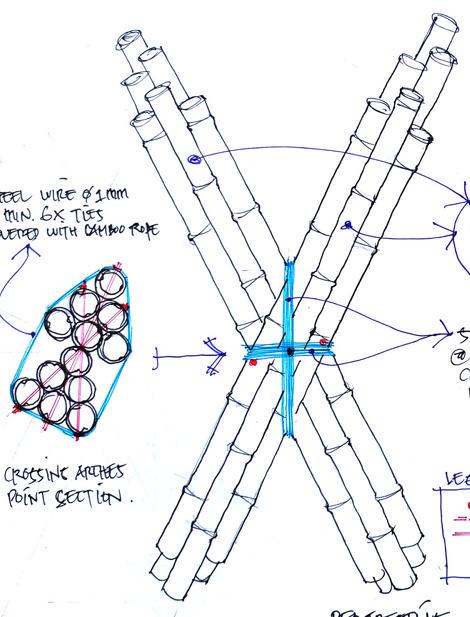 TEEL WIRE Ø 1MM
MIN. 6X TIES
VERED WITH BAMBOO ROPE
CROSSING ARCHES
POINT SECTION.
S
@
C
LE